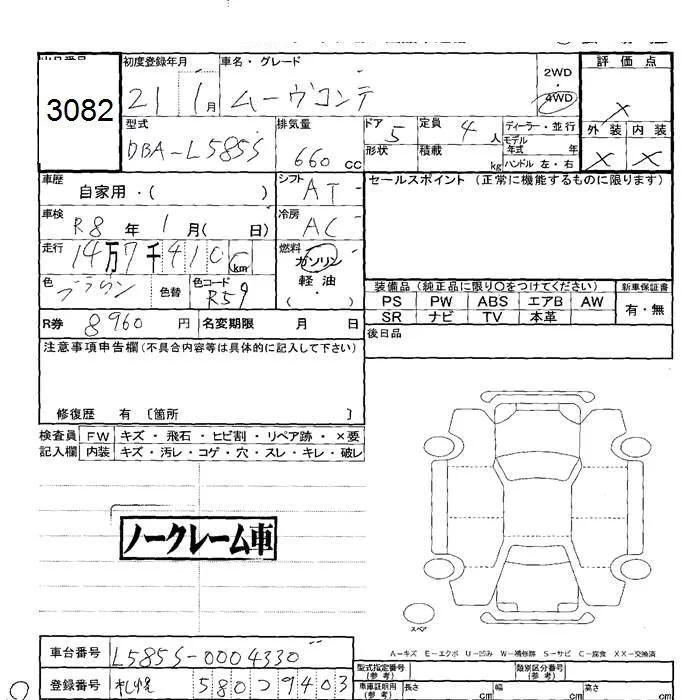 初度登録年月
車名・グレード
評価点
3082
21年 1月
ムーヴコンテ
2WD
4WD
×
型式
排気量
ドア 5
定員 4人
ディーラー・並行
外装 内装
DBA-L585S
660cc
形状
積載 kg
モデル年式 年
ハンドル 左・右
× ×
車歴
自家用・( )
シフト AT
セールスポイント (正常に機能するものに限ります)
車検
R8年 1月( 日)
冷房 AC
走行
14万7千410km
燃料
ガソリン
軽油
( )
色
ブラウン
色替
色コード
R59
装備品 (純正品に限り○をつけてください)
新車保証書
PS PW ABS エアB AW
SR ナビ TV 本革
有・無
R券 8960円
名変期限 月 日
後日品
注意事項申告欄(不具合内容等は具体的に記入して下さい)
修復歴 有 〔箇所 〕
検査員 FW キズ・飛石・ヒビ割・リペア跡・×要
記入欄 内装 キズ・汚レ・コゲ・穴・スレ・キレ・破レ
ノークレーム車
スペア
A-キズ E-エクボ U-凹み W-補修跡 S-サビ C-腐食 XX-交換済
車台番号 L585S-0004330
登録番号 札幌 580つ9403
型式指定番号(参考)
類別区分番号(参考)
車庫証明用(参考) 長さ cm 幅 cm 高さ cm